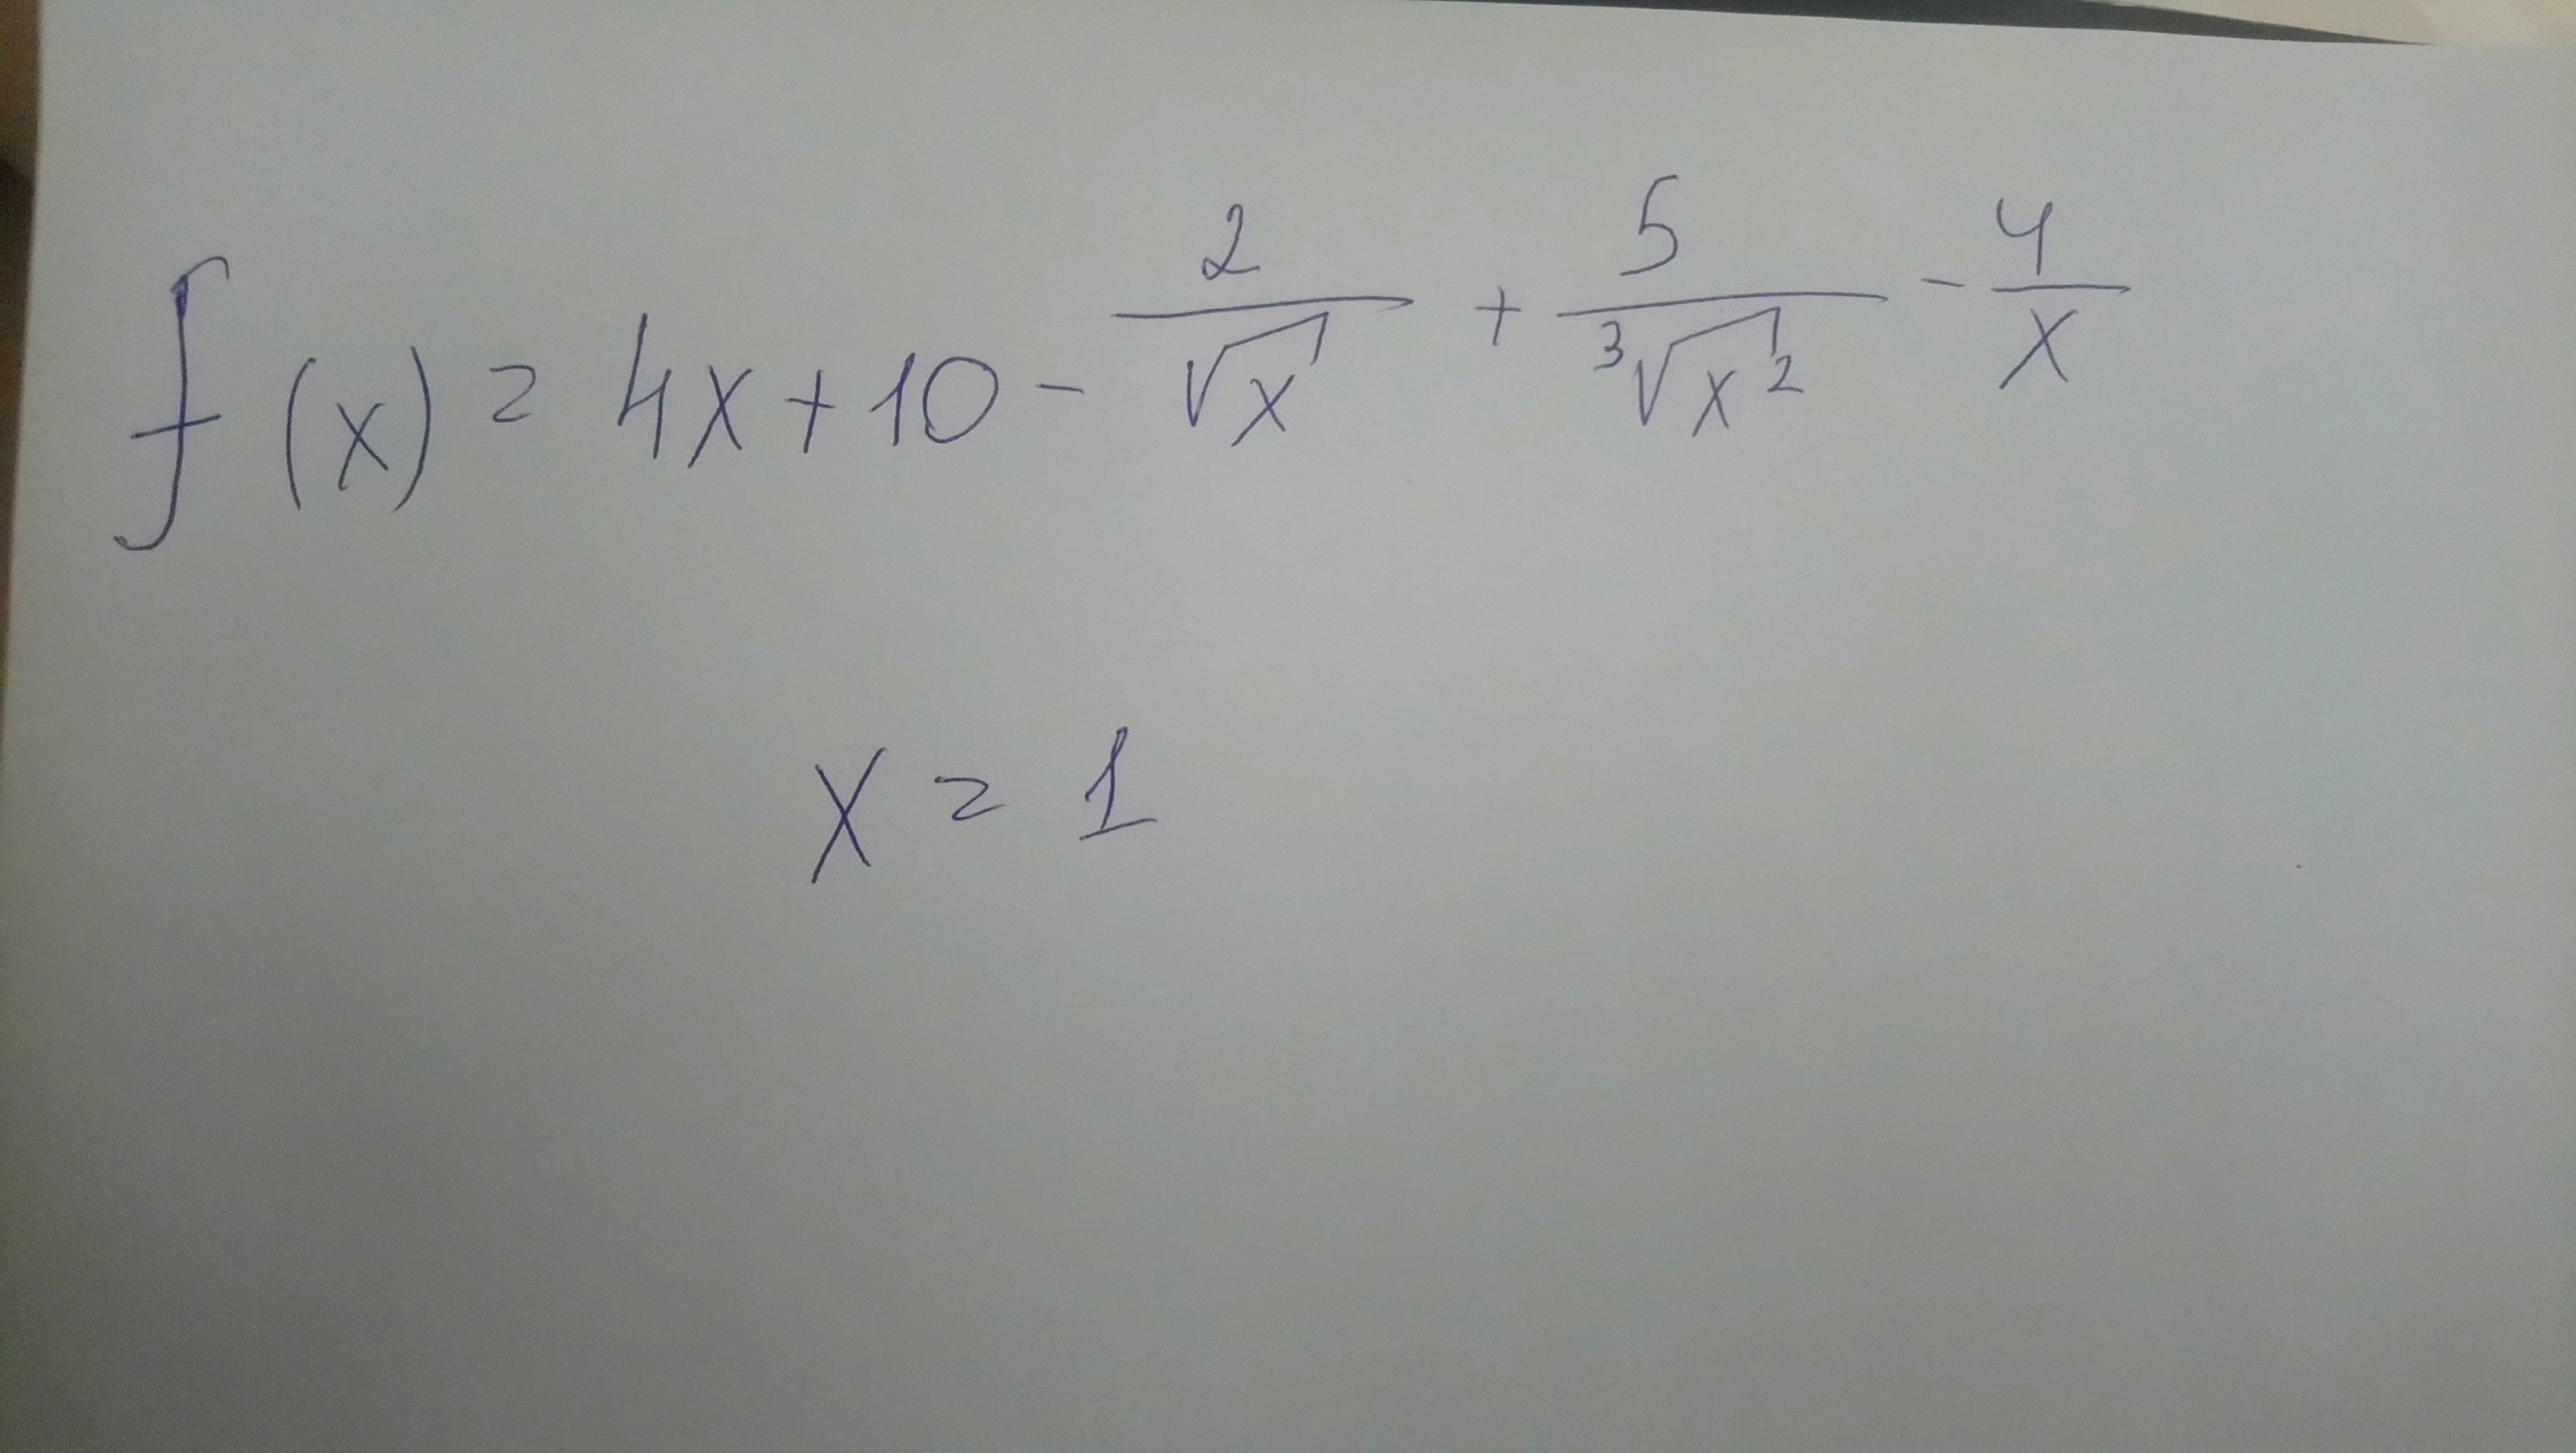 f(x) = 4x + 10 - 2/√x + 5/³√x² - 4/x
x = 1